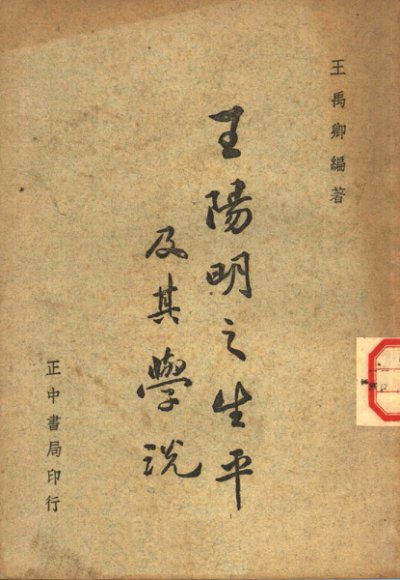 王禹卿編著
王陽明之生平
及其學説
正中書局印行